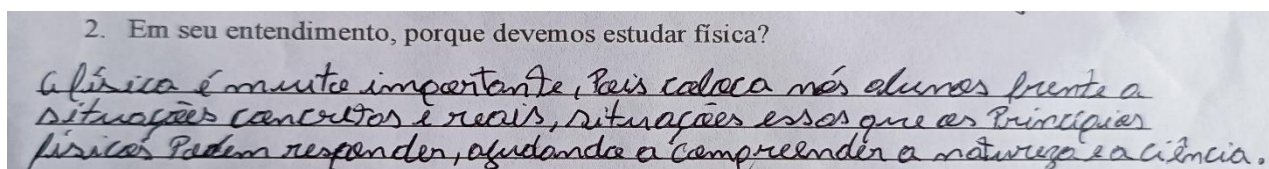 2. Em seu entendimento, porque devemos estudar física?
A física é muito importante, Pois coloca nós alunos frente a
situações concretas e reais, situações essas que os Princípios
físicos Podem responder, ajudando a compreender a natureza e a ciência.